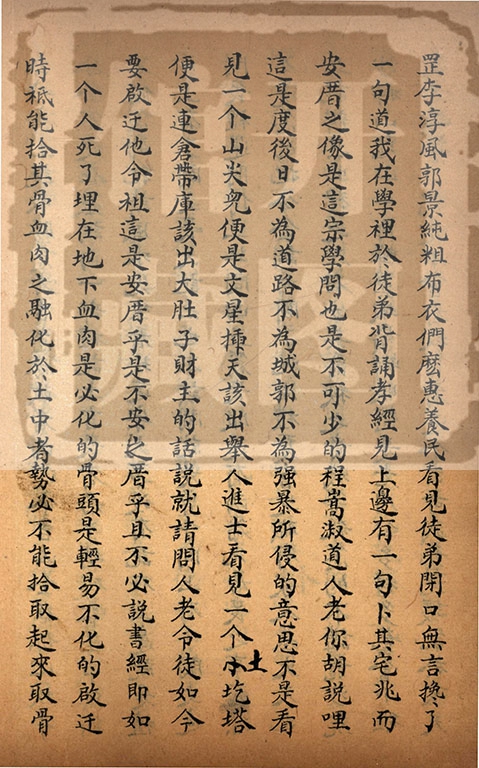 罡李淳風郭景純粗布衣們麽惠養民看見徒弟閉口無言攙了
一句道我在學裡於徒弟背誦孝經見上邊有一句卜其宅兆而
安厝之像是這宗學問也是不可少的程嵩淑道人老你胡說哩
這是度後日不為道路不為城郭不為強暴所侵的意思不是看
見一个山尖兒便是文星揷天該出舉人進士看見一个小土圪塔
便是連倉帶庫該出大肚子財主的話說就請問人老令徒如今
要啟迁他令祖這是安厝乎是不安之厝乎且不必說書經即如
一个人死了埋在地下血肉是必化的骨頭是輕易不化的啟迁
時祇能拾其骨血肉之融化於土中者勢必不能拾取起來取骨